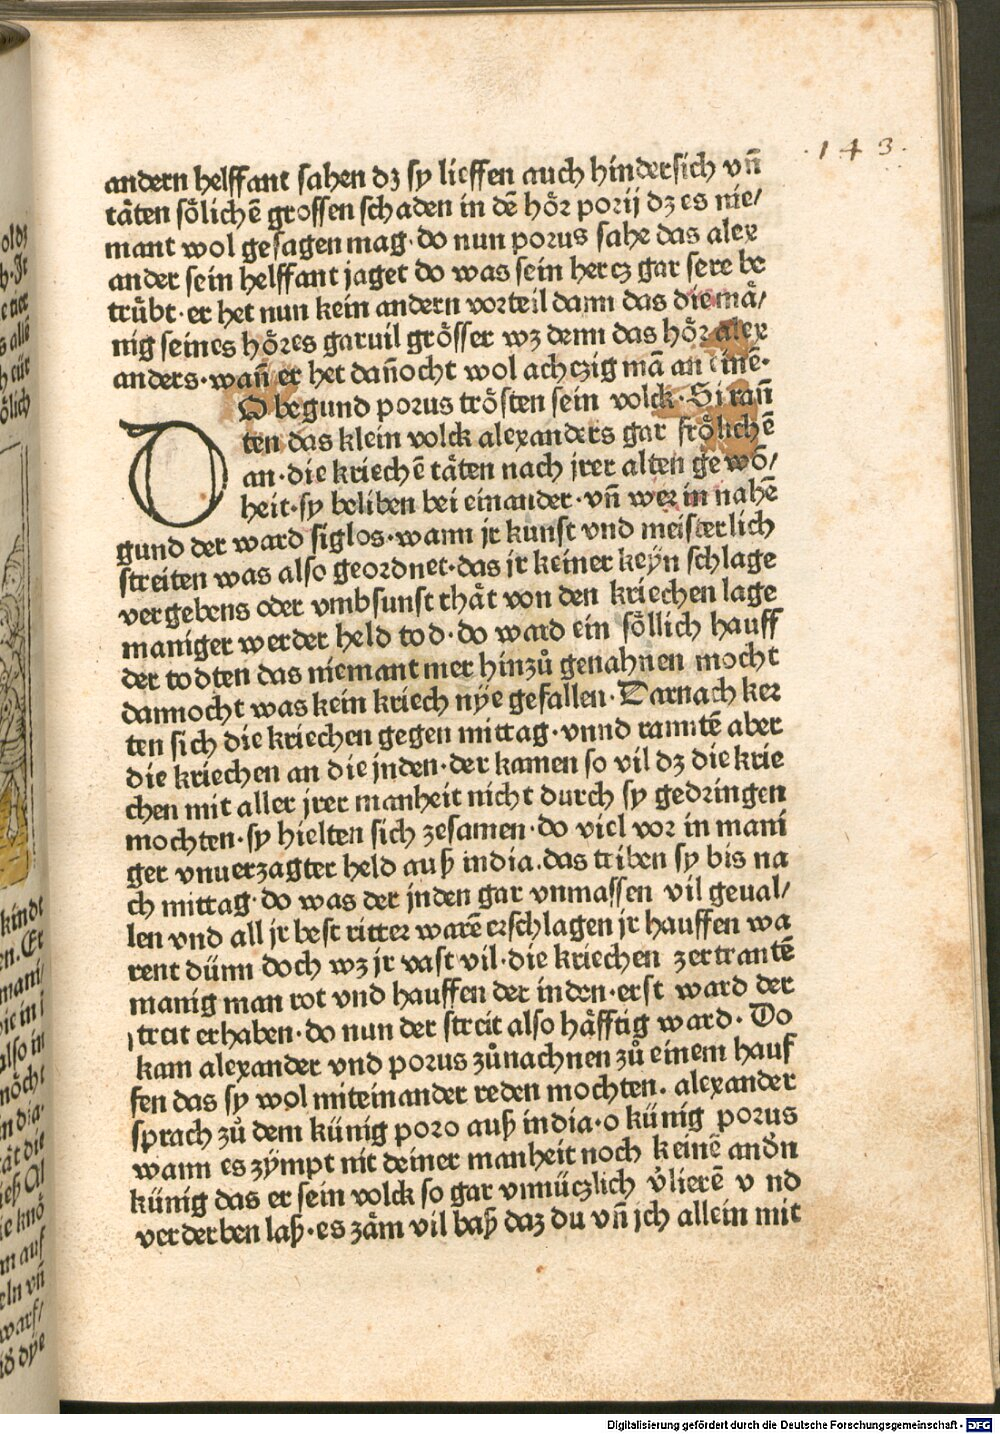 ·143·
andern helffant sahen dz sy lieffen auch hindersich vn̄
tåten sölichē grossen schaden in dē hör porij dz es nie/
mant wol gesagen mag· do nun porus sahe das alex
ander sein helffant jaget do was sein hercz gar sere be
trübt· er het nun kein andern vorteil dann das die mä/
nig seines höres garuil grösser wz denn das hör alex
anders· wan̄ er het dan̄ocht wol achczig mā an einē·
DO begund porus trösten sein volck· Si ran̄
ten das klein volck alexanders gar frölichē
an· die kriechē täten nach jrer alten gewō/
heit· sy beliben bei einander· vn̄ wer in nahē
gund der ward siglos· wann jr kunst vnd meisterlich
streiten was also geordnet· das jr keiner keÿn schlage
vergebens oder vmbsunst thät von den kriechen lage
maniger werder held tod· do ward ein söllich hauff
der todten das niemant mer hinzů genahnen mocht
dannocht was kein kriech nÿe gefallen· Darnach ker
ten sich die kriechen gegen mittag· vnnd ranntē aber
die kriechen an die jnden· der kamen so vil dz die krie
chen mit aller jrer manheit nicht durch sy gedringen
mochten· sy hielten sich zesamen· do viel vor in mani
ger vnuerzagter held auß india. das triben sy bis na
ch mittag· do was der jnden gar vnmassen vil geual/
len vnd all jr best ritter warē erschlagen jr hauffen wa
rent dünn doch wz jr vast vil· die kriechen zertrantē
manig man rot vnd hauffen der inden· erst ward der
streit erhaben· do nun der streit also häfftig ward· Do
kam alexander vnd porus zůnachnen zů einem hauf
fen das sy wol miteinander reden mochten. alexander
sprach zů dem künig poro auß india· o künig porus
wann es zÿmpt nit deiner manheit noch keinē andn
künig das er sein volck so gar vnnüczlich v̓lierē vnd
verderben laß· es zäm vil baß daz du vn̄ jch allein mit
Digitalisierung gefördert durch die Deutsche Forschungsgemeinschaft - DFG